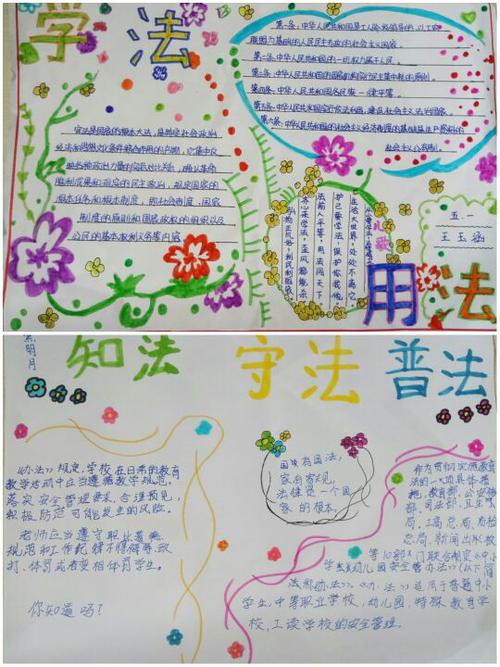 学法
第一条:中华人民共和国是工人阶级领导的,以工农
联盟为基础的人民民主专政的社会主义国家。
第二条:中华人民共和国的一切权力属于人民。
第三条:中华人民共和国的国家机构实行民主集中制的原则。
第四条:中华人民共和国各民族一律平等。
第五条:中华人民共和国实行依法治国,建设社会主义法治国家。
第六条:中华人民共和国的社会主义经济制度的基础是生产资料的
社会主义公有制。
宪法是国家的根本大法,是制定社会政治
胜利成果和
国家的
根本任务和根本制度,即社会制度,国家
制度的原则和国家政权的组织以及
公民的基本权利义务等内容
在法大世界,处处不离它。
护己要学法,保护你我他。
法前人平等,用法闯天下。
五一
王玉涵
用法
明月
知法 守法 普法
办法》规定,学校在日常的教育
教学活动中应当遵循教学规范,
落实安全管理要求,合理预见,
积极防范可能发生的风险。
老师应当遵守职业道德
规范和工作纪律不得侮辱、殴
打、体罚或者变相体罚学生。
你知道吗?
国有国法,
家有家规,
法律是一个国
家的根本。
作为贯彻实施教育
法的一项具体措
施,教育部、公安部、
司法部、建设
总局、新闻出版
等10部门联合制定《中小
学生幼儿园安全管办法》(以下简
法称办法》)。《办法》适用于普通中小
学生,中等职业学校,幼儿园,特殊教育学
校,工读学校的安全管理。